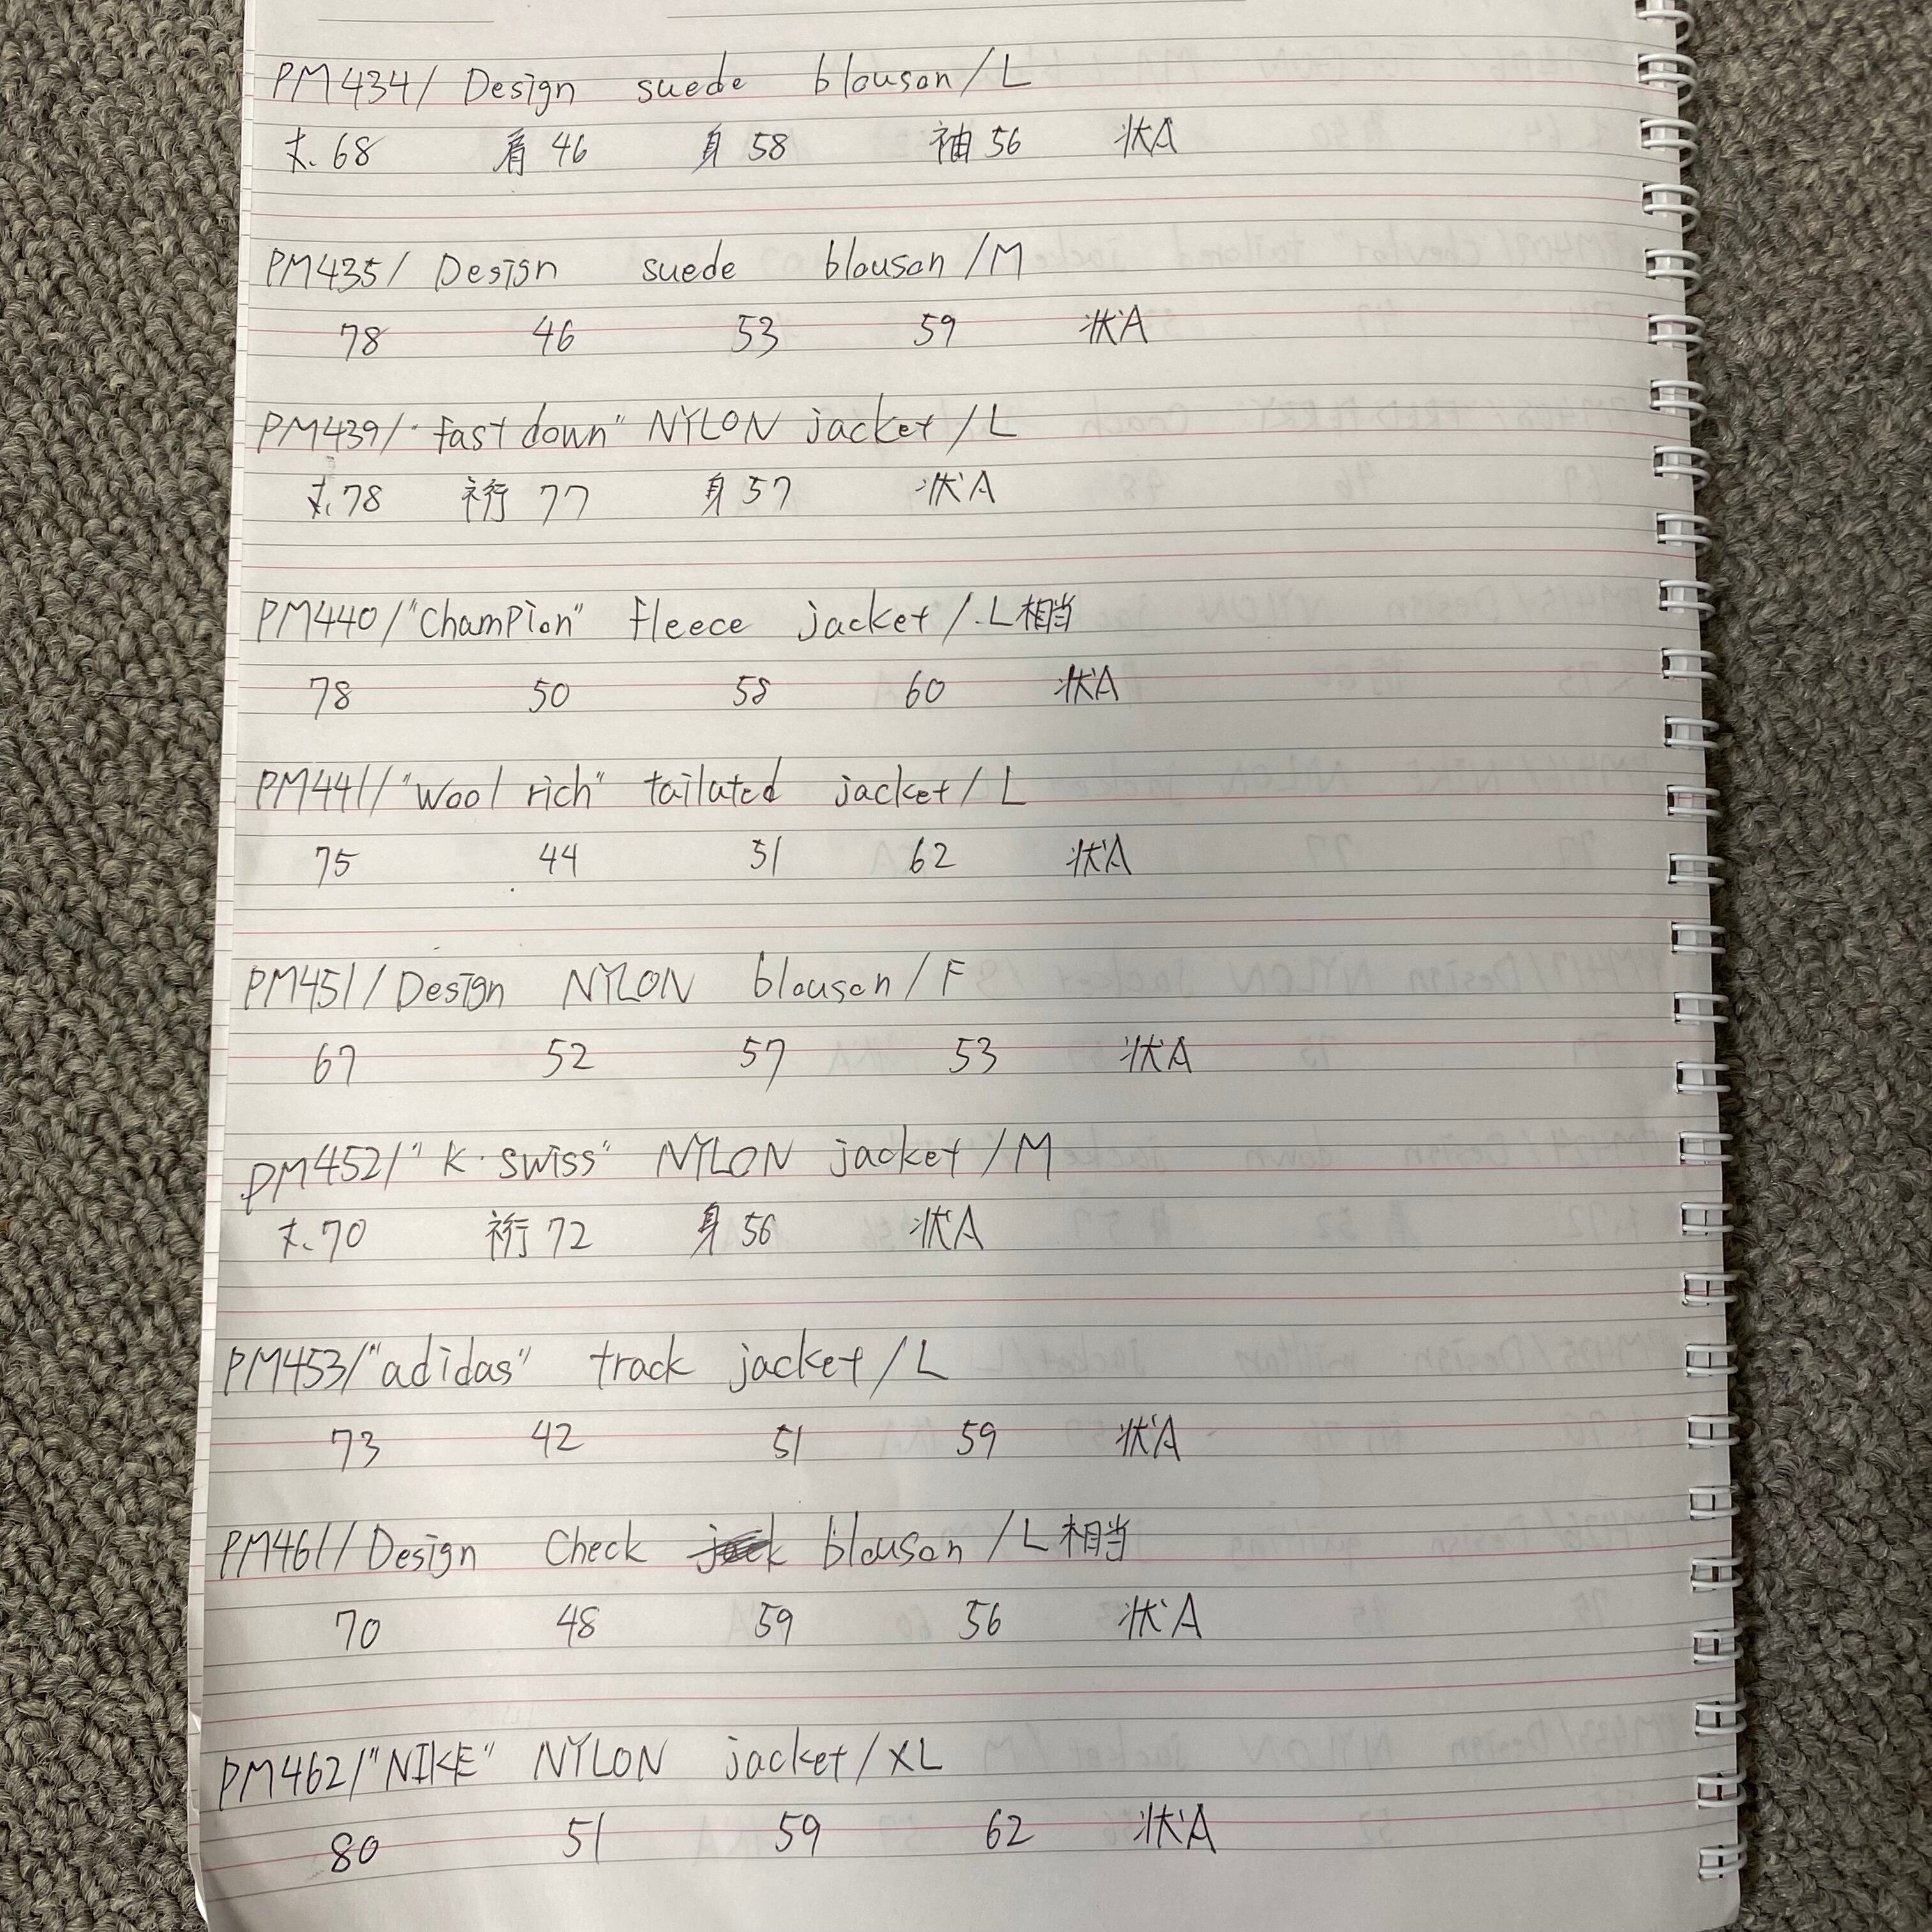 PM434/ Design suede blouson/L
丈.68 肩46 身58 袖56 状A
PM435/ Design suede blouson/M
78 46 53 59 状A
PM439/"fast down" NYLON jacket/L
丈.78 裄77 身57 状A
PM440/"Champion" fleece jacket/.L相当
78 50 58 60 状A
PM441/"Wool rich" tailated jacket/L
75 44 51 62 状A
PM451/Design NYLON blouson/F
67 52 57 53 状A
PM452/"K・swiss" NYLON jacket/M
丈.70 裄72 身56 状A
PM453/"adidas" track jacket/L
73 42 51 59 状A
PM461/Design Check blouson/L相当
70 48 59 56 状A
PM462/"NIKE" NYLON jacket/XL
80 51 59 62 状A